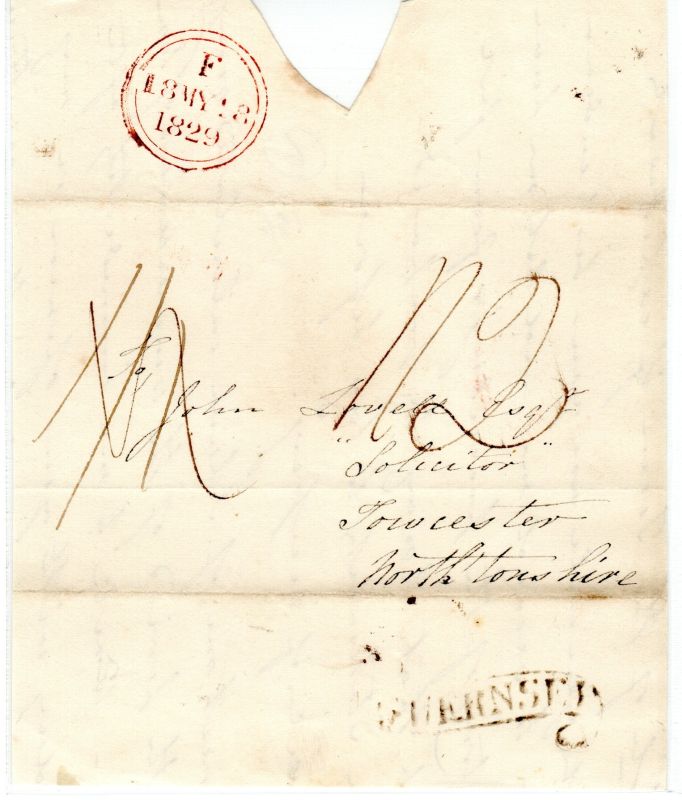 F
18MY18
1829
To
John Lovell Esqr
"Solicitor"
Towcester
North'tonshire
GUERNSEY